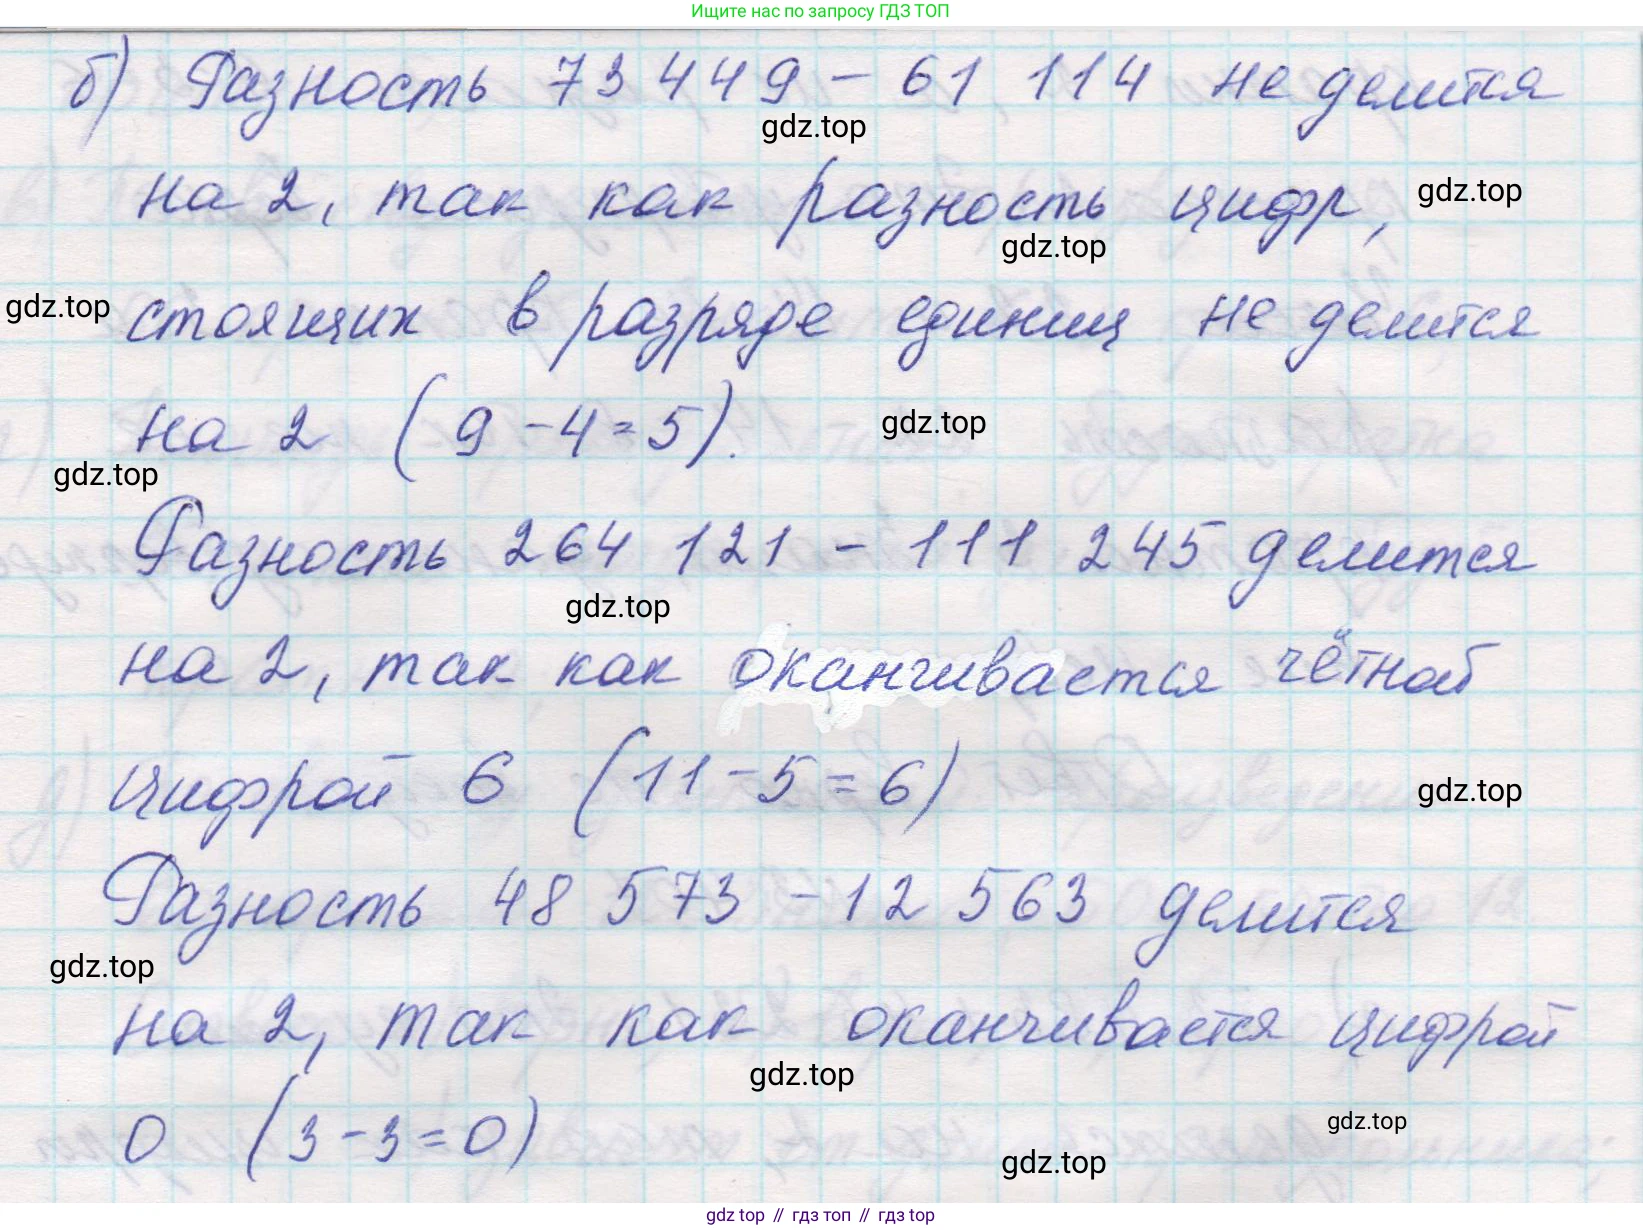 Ищите нас по запросу ГДЗ ТОП
б) Разность 73 449 - 61 114 не делится
gdz.top
на 2, так как разность цифр,
gdz.top
gdz.top
стоящих в разряде единиц не делится
gdz.top
на 2 (9 - 4 = 5).
gdz.top
gdz.top
Разность 264 121 - 111 245 делится
gdz.top
на 2, так как оканчивается чётной
цифрой 6 (11 - 5 = 6)
gdz.top
Разность 48 573 - 12 563 делится
gdz.top
на 2, так как оканчивается цифрой
gdz.top
0 (3 - 3 = 0)
gdz.top
gdz.top
gdz.top // гдз топ // гдз.top